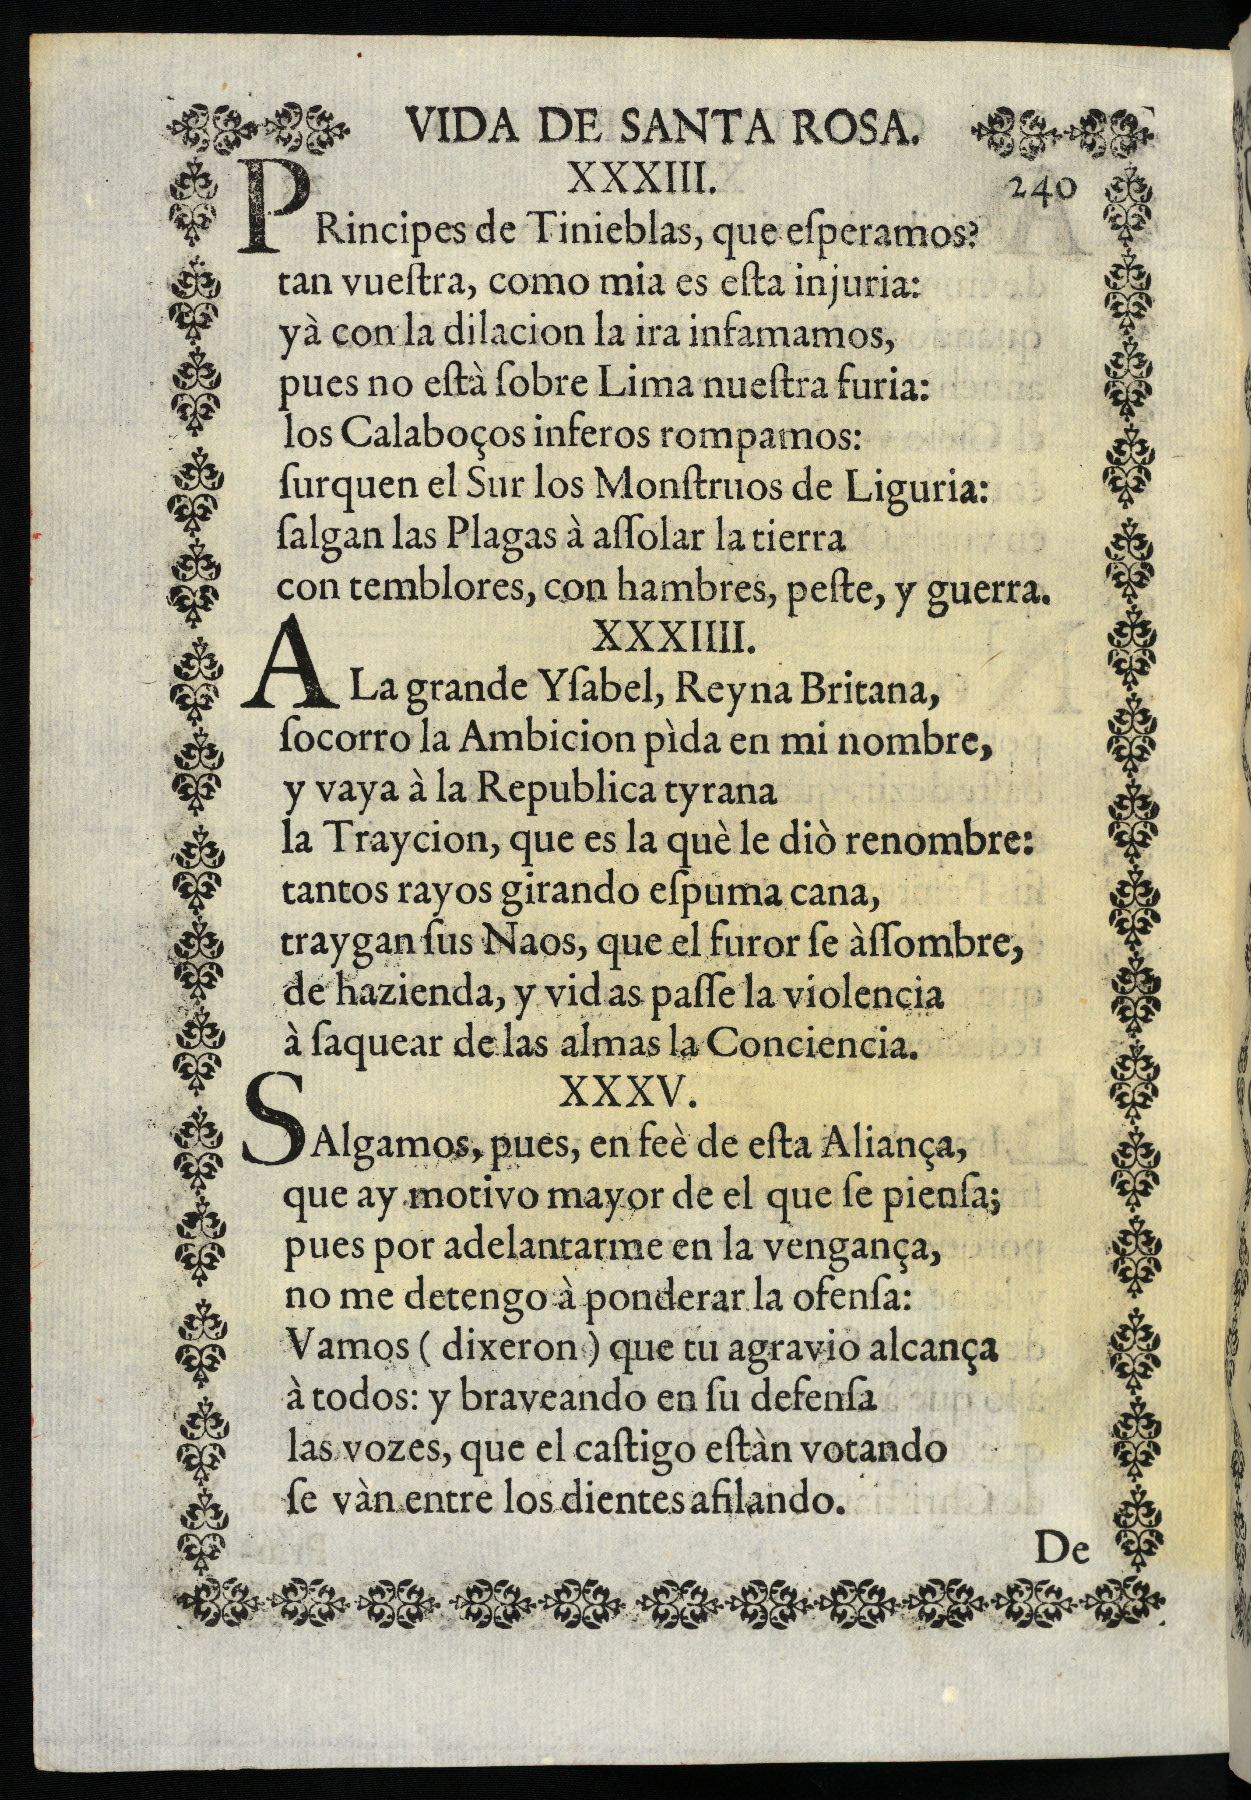 VIDA DE SANTA ROSA.
XXXIII.
240
PRincipes de Tinieblas, que eſperamos?
tan vueſtra, como mia es eſta injuria:
yà con la dilacion la ira infamamos,
pues no eſtà ſobre Lima nueſtra furia:
los Calaboços inferos rompamos:
ſurquen el Sur los Monſtruos de Liguria:
ſalgan las Plagas à aſſolar la tierra
con temblores, con hambres, peſte, y guerra.
XXXIIII.
A La grande Yſabel, Reyna Britana,
ſocorro la Ambicion pìda en mi nombre,
y vaya à la Republica tyrana
la Traycion, que es la què le diò renombre:
tantos rayos girando eſpuma cana,
traygan ſus Naos, que el furor ſe àſſombre,
de hazienda, y vidas paſſe la violencia
à ſaquear de las almas la Conciencia.
XXXV.
SAlgamos, pues, en feè de eſta Aliança,
que ay motivo mayor de el que ſe pienſa;
pues por adelantarme en la vengança,
no me detengo à ponderar la ofenſa:
Vamos ( dixeron ) que tu agravio alcança
à todos: y braveando en ſu defenſa
las vozes, que el caſtigo eſtàn votando
ſe vàn entre los dientes afilando.
De